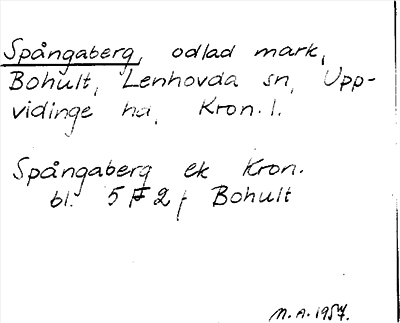 Spångaberg, odlad mark,
Bohult, Lenhovda sn, Upp-
vidinge hd, Kron. l.
Spångaberg ek Kron.
bl. 5 F 2 f Bohult
M.A. 1957.